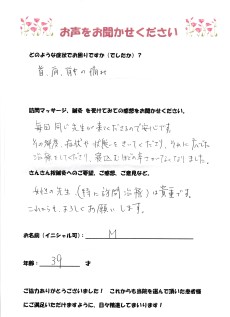 お声をお聞かせください
どのような症状でお困りですか（でしたか）？
首、肩、腰の痛み
訪問マッサージ、鍼灸 を受けてみての感想をお聞かせください。
毎回同じ先生が来てくださるので安心です。
その都度、症状や状態をきいてくださり、それに応じた
治療をしてくださり、
さんさん治療院へのご要望、ご感想、ご意見など。
女性の先生（特に訪問治療）は貴重です。
これからも、よろしくお願いします。
お名前（イニシャル可）： M
年齢： 39 才
ご協力ありがとうございました！ これからも当院を選んで頂いた患者様
にご満足いただけますように、日々精進してまいります！